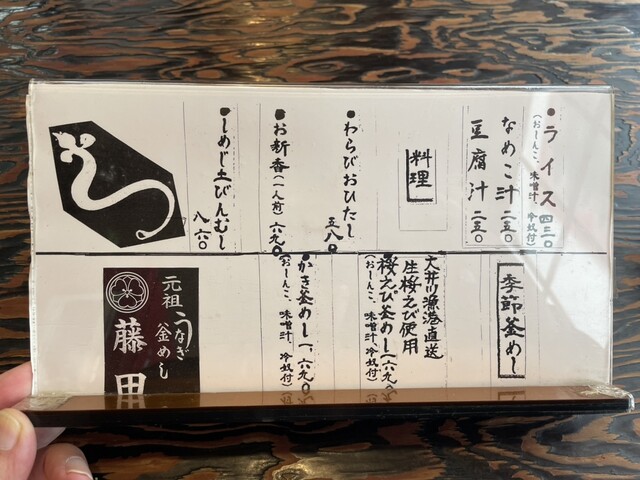 ●ライス 四三〇
(おしんこ、味噌汁、冷奴付)
なめこ汁 二五〇
豆腐汁 二五〇
料理
●わらびおひたし 五八〇
●お新香(一人前) 六九〇
●しめじ土びんむし 八六〇
季節釜めし
大井川漁港直送
生桜えび使用
桜えび釜めし(一六九〇)
(おしんこ、味噌汁、冷奴付)
かき釜めし(一、六九〇)
(おしんこ、味噌汁、冷奴付)
元祖うなぎ
釜めし
藤田